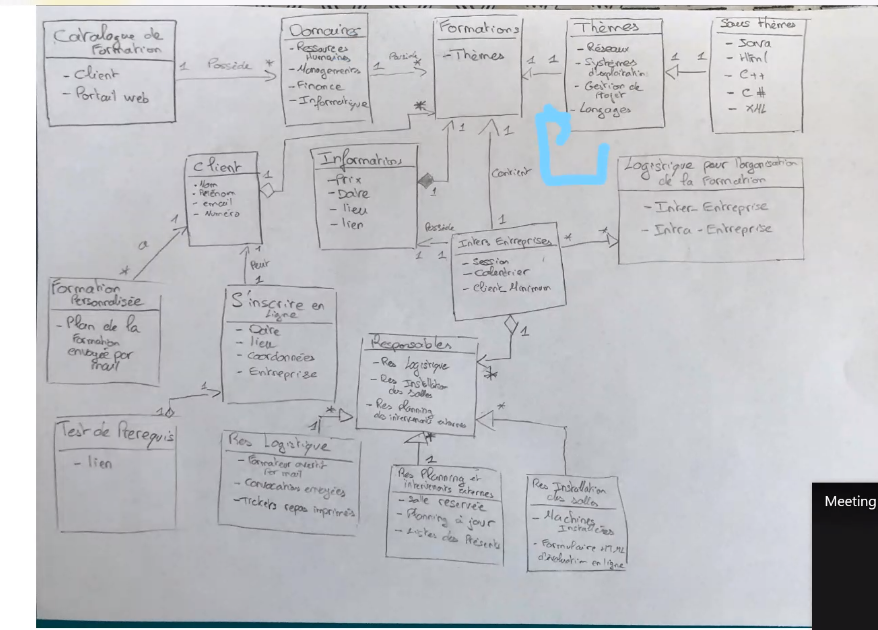 Catalogue de
Formation
- Client
- Portail web
1 Possède *
Domaines
- Ressources
Humaines
- Managements
- Finance
- Informatique
1 *
Formations
- Thèmes
1 1
Thèmes
- Réseau
- Systèmes
d'exploitation
- Gestion de
Projet
- Langages
1 1
Sous thèmes
- Java
- Html
- C++
- C#
- XML
Client
- Nom
- Prénom
- email
- Numéro
1
*
Informations
- Prix
- Date
- lieu
- lien
1
1
Contient
1
1
Logistique pour l'organisation
de la Formation
- Inter-Entreprise
- Intra-Entreprise
Possède
1 1
Inters Entreprises
- Session
- Calendrier
- Client Minimum
* *
a
1
*
Peut
1
1
Formation
Personnalisée
- Plan de la
Formation
envoyée par
mail
S'inscrire en
Ligne
- Date
- lieu
- Coordonnées
- Entreprise
Responsables
- Res Logistique
- Res Installation
des salles
- Res Planning
des intervenants externes
1
*
1
1
Test de Prérequis
- lien
Res Logistique
- Formateur averti
Par mail
- Convocation envoyées
- Tickets repas imprimés
1 *
*
1
*
Res Planning et
intervenants externes
- Salle reservée
- Planning à jour
- Listes des Présents
Res Installation
des salles
- Machines
Installées
- Formulaire HTML
d'évaluation en ligne
Meeting